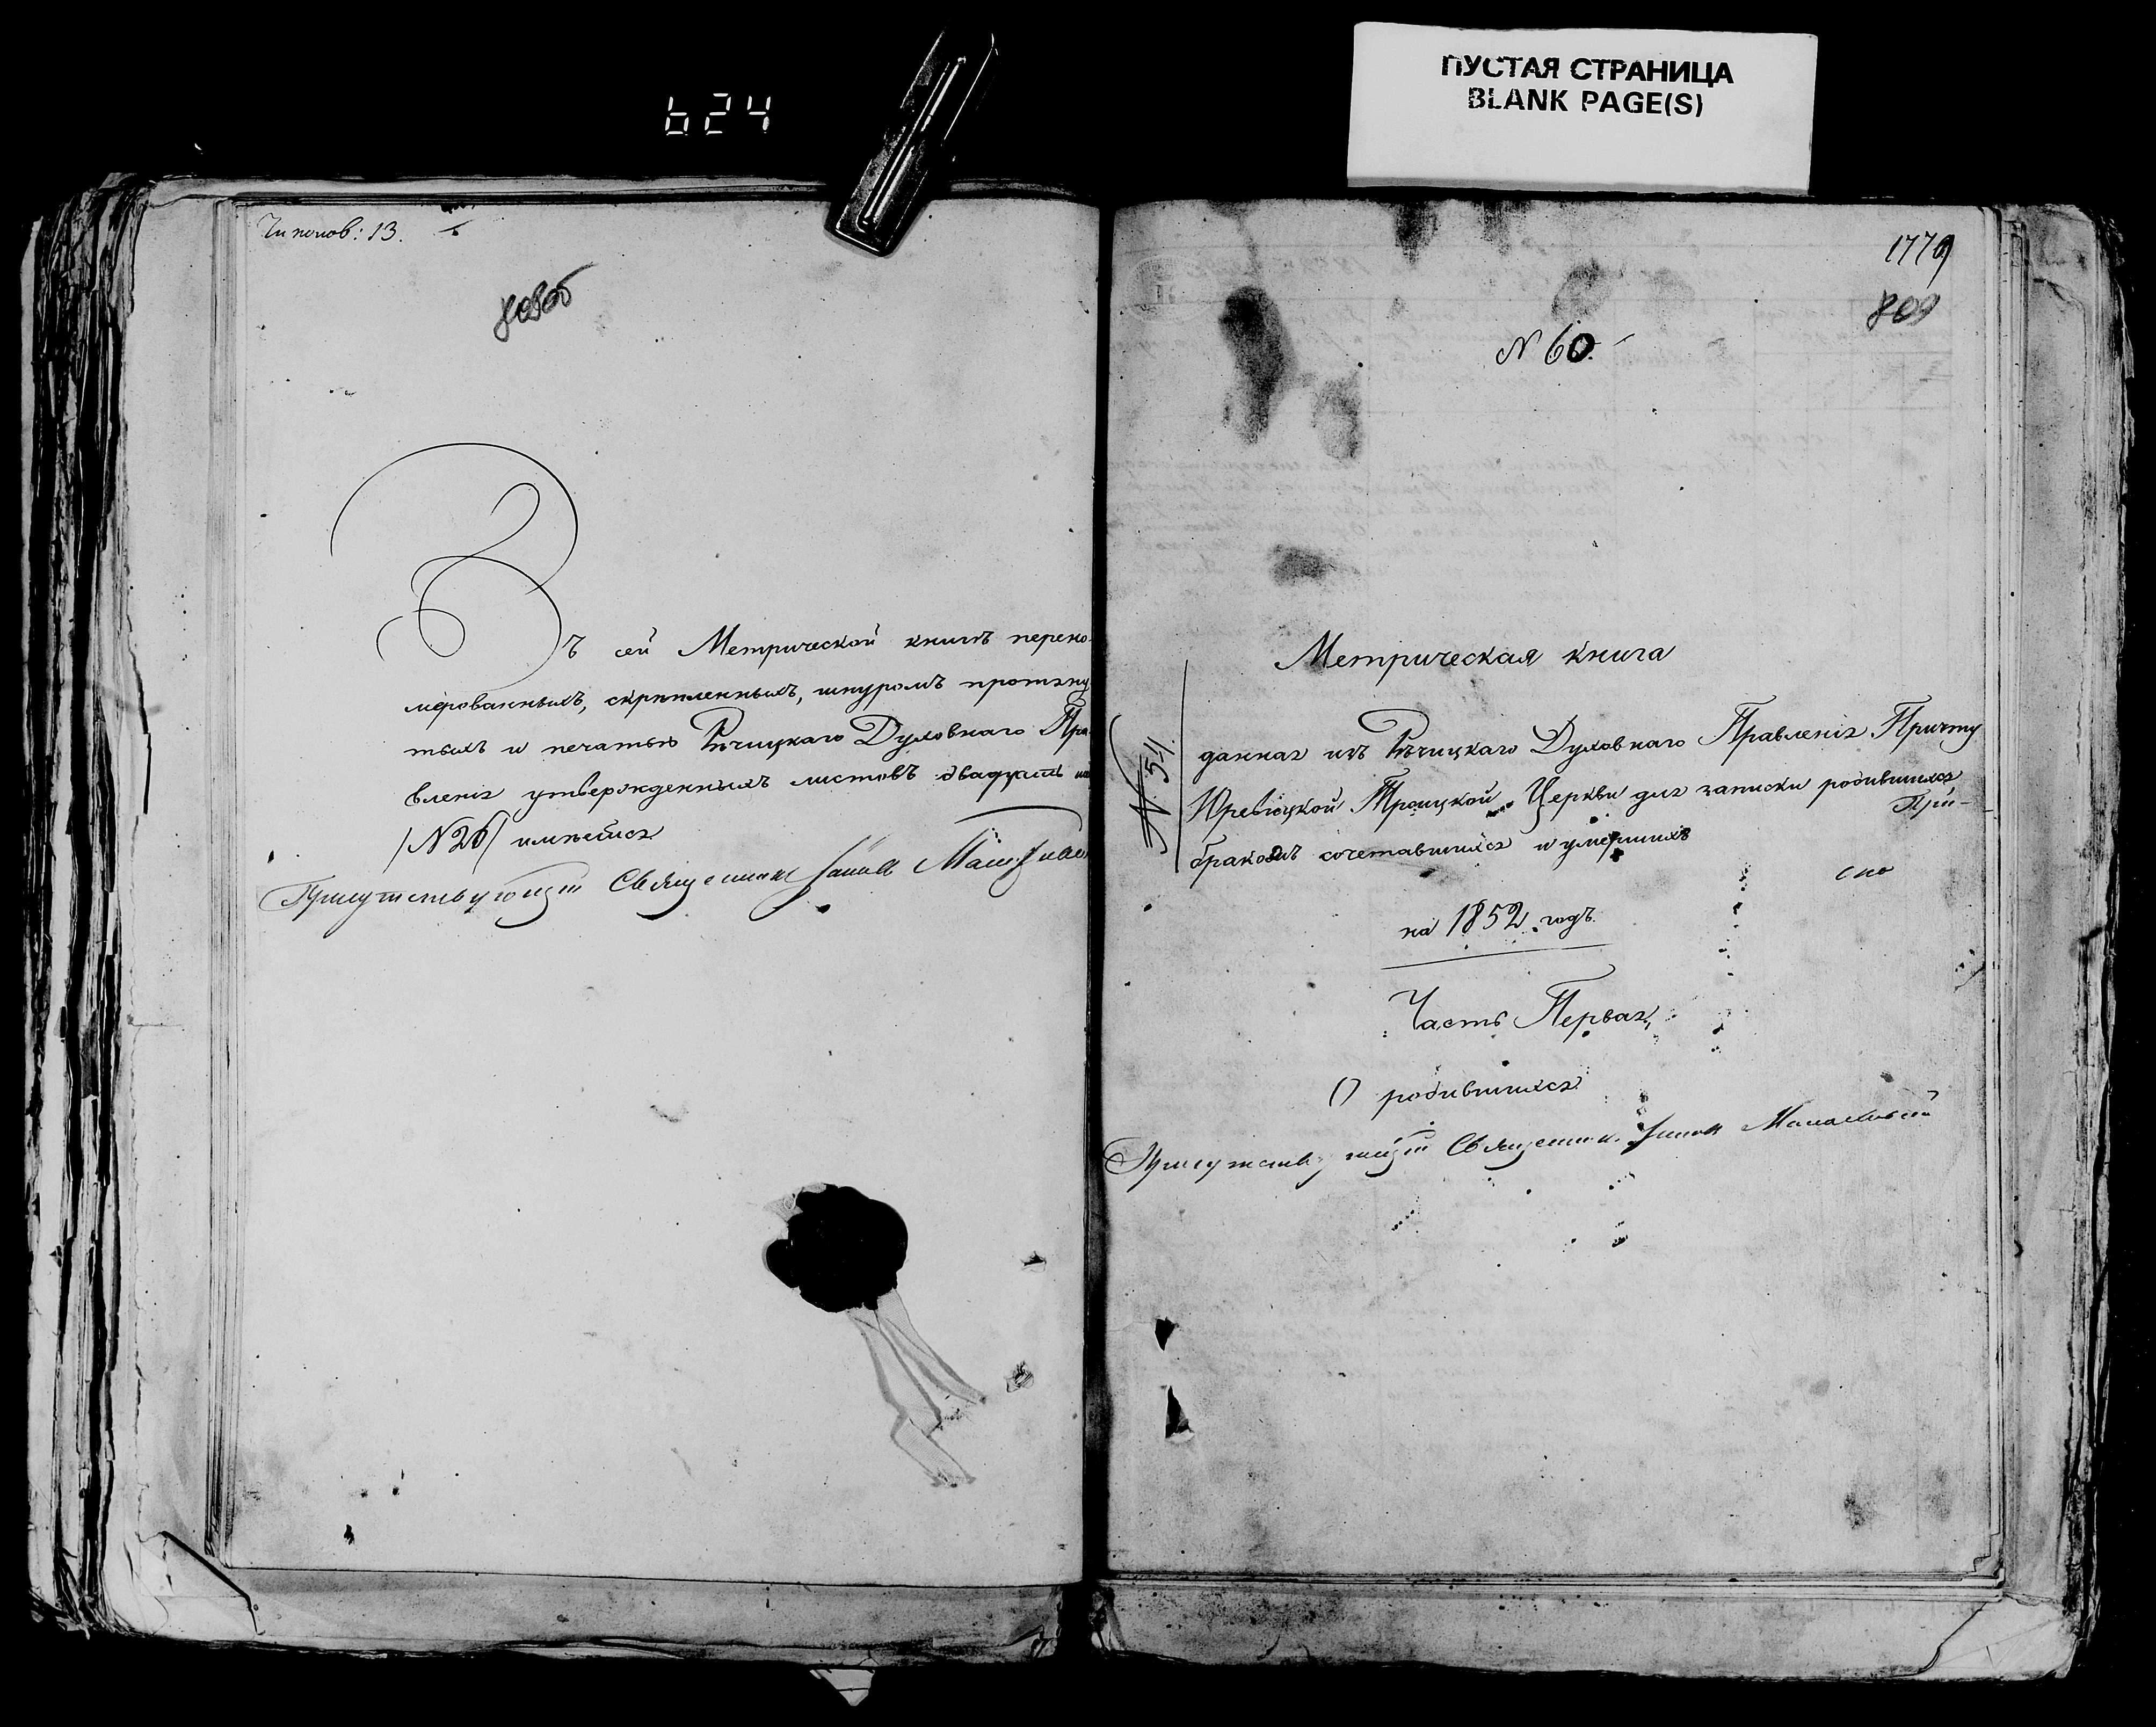 624
ПУСТАЯ СТРАНИЦА
BLANK PAGE(S)
13.
808об
Въ сей Метрической книгѣ перено-
мерованныхъ, скрѣпленныхъ, шнуромъ протяну
тыхъ и печатью Рѣчицкаго Духовнаго Пра-
вленія утвержденныхъ листовъ двадцать
/N 26/ имѣется
Присутствующій Священникъ
1770
809
N 60.
Метрическая книга
N. 511.
данная изъ Рѣчицкаго Духовнаго Правленія Причту
Юревичской Троицкой Церкви для записки родившихся
При-
бракомъ сочетавшихся и умершихъ
сно
на 1852 годъ.
Часть Первая,
О родившихся
Присутствующій Священникъ